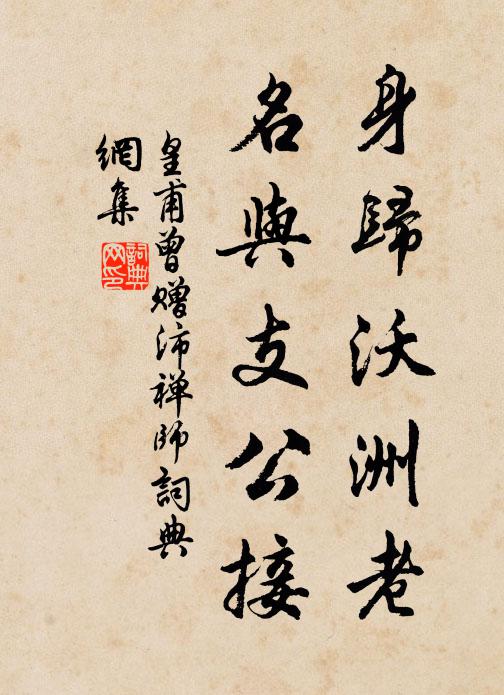 身歸沃洲老
名與支公接
皇甫曾贈沛禪師詞典
網集
詞典网印